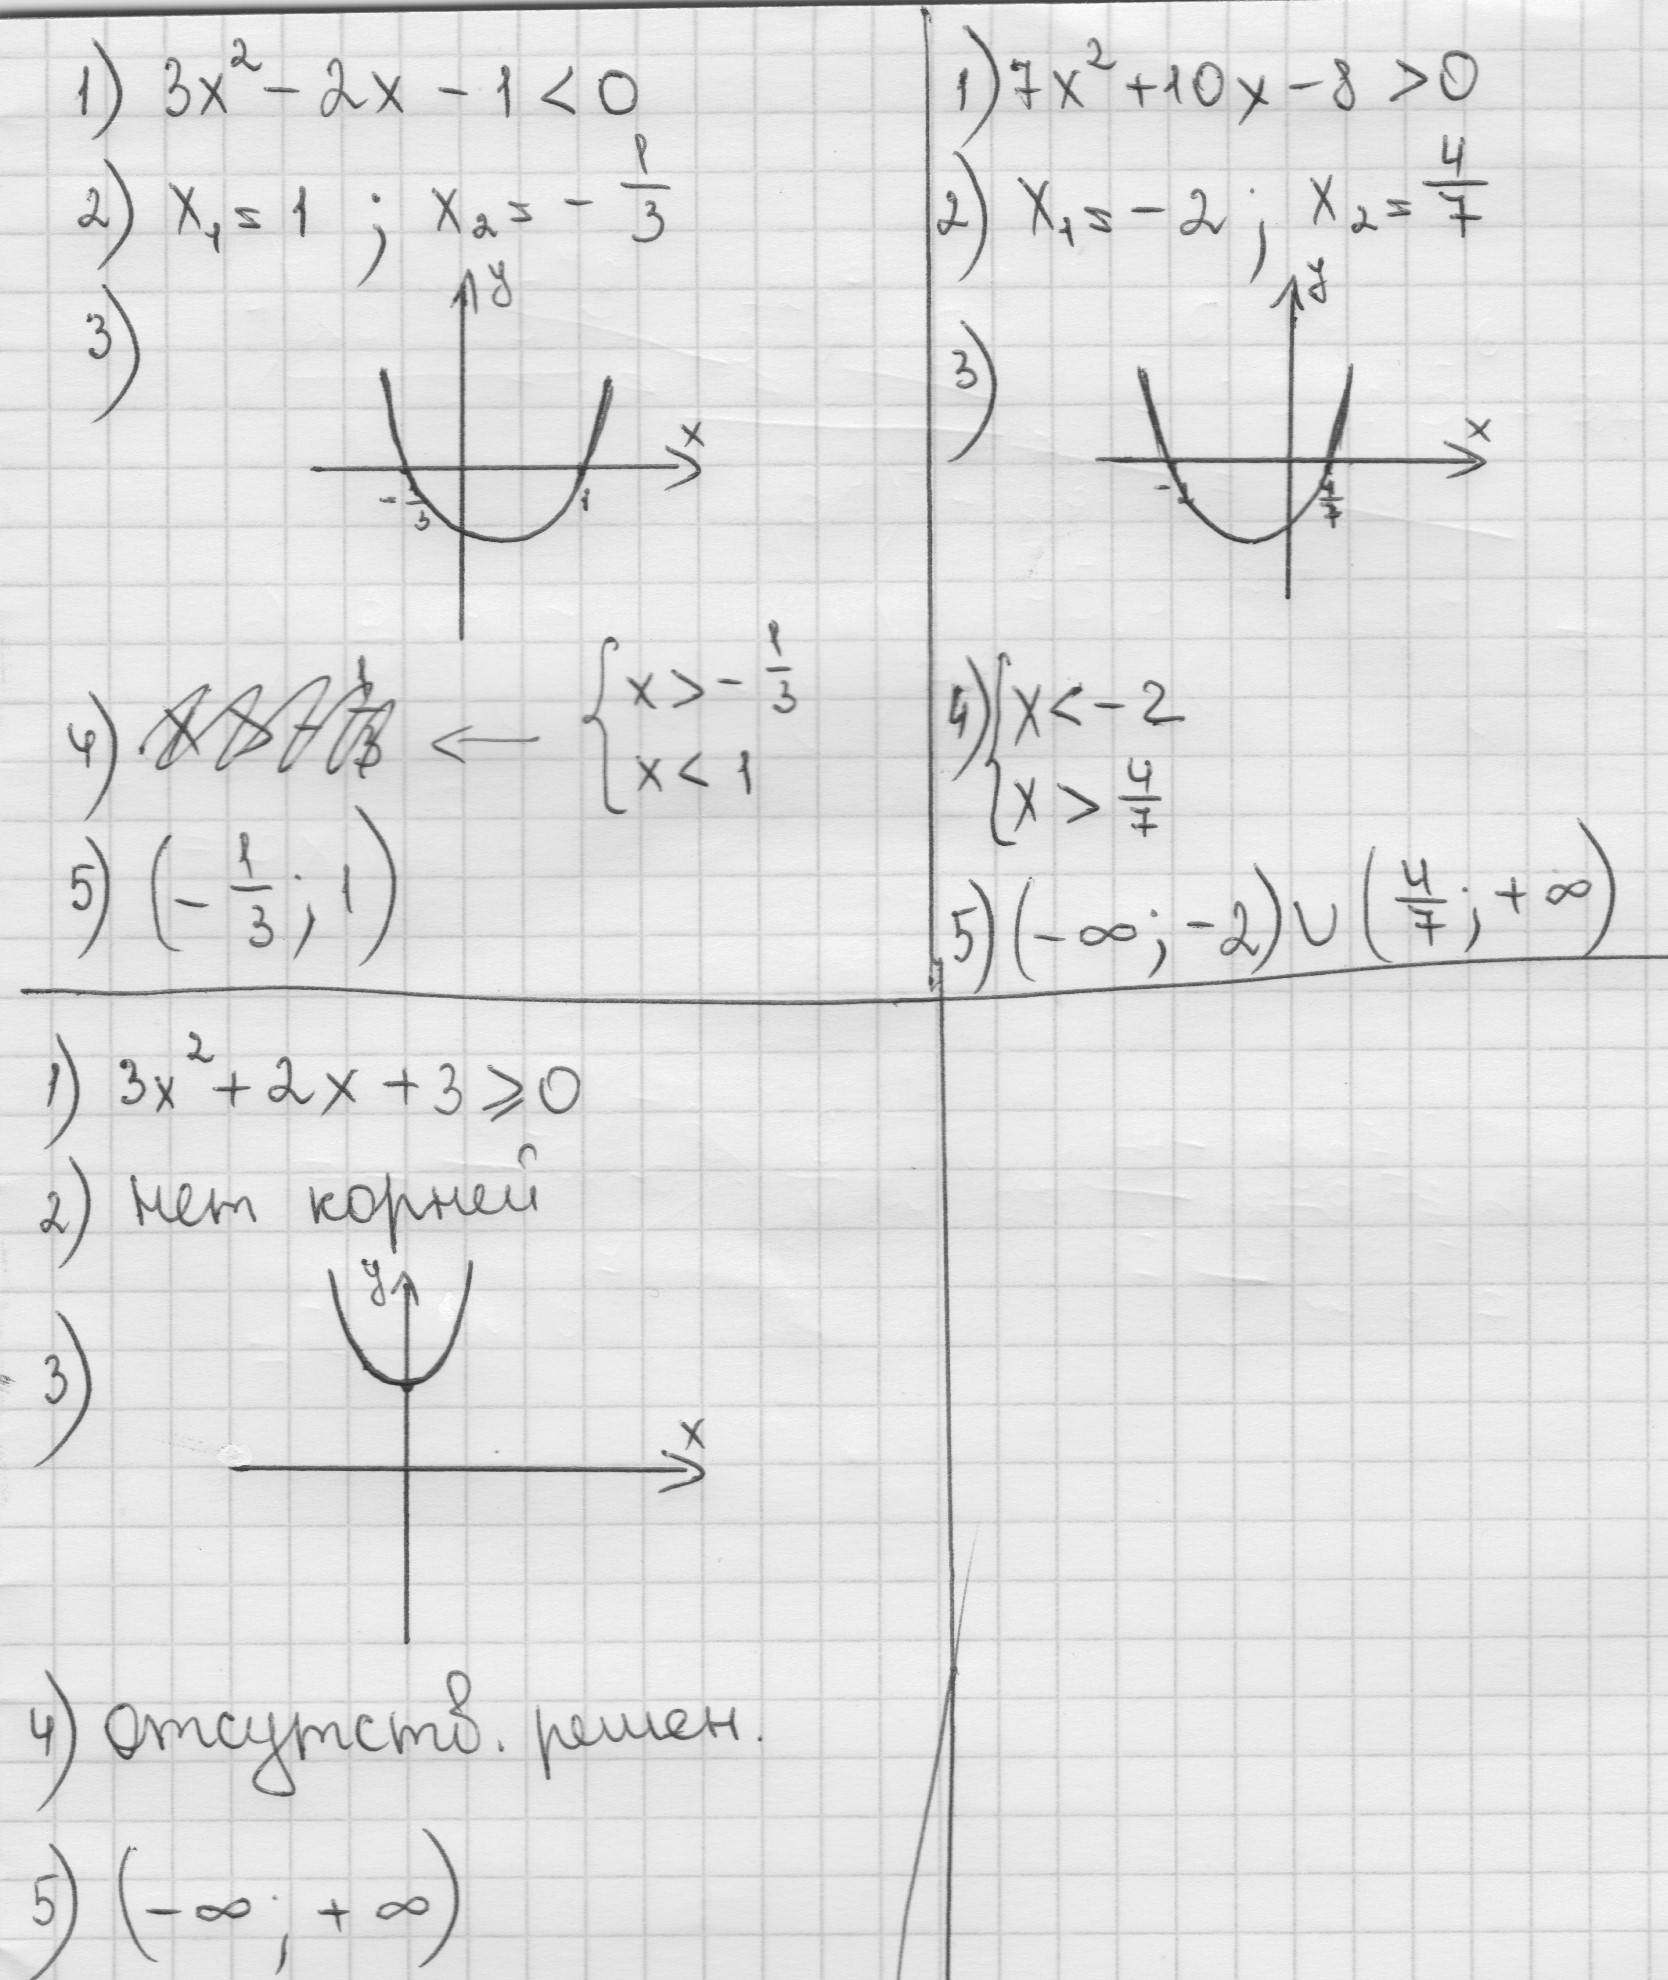 1) 3x² - 2x - 1 < 0
2) x₁ = 1 ; x₂ = - 1/3
3)
y
x
- 1/3
1
4) x > - 1/3 ← { x > - 1/3
x < 1
5) (- 1/3 ; 1)
1) 7x² + 10x - 8 > 0
2) x₁ = - 2 ; x₂ = 4/7
3)
y
x
- 2
4/7
4) { x < - 2
x > 4/7
5) (- ∞ ; - 2) ∪ (4/7 ; + ∞)
1) 3x² + 2x + 3 ⩾ 0
2) нет корней
3)
y
x
4) отсутств. решен.
5) (- ∞ ; + ∞)